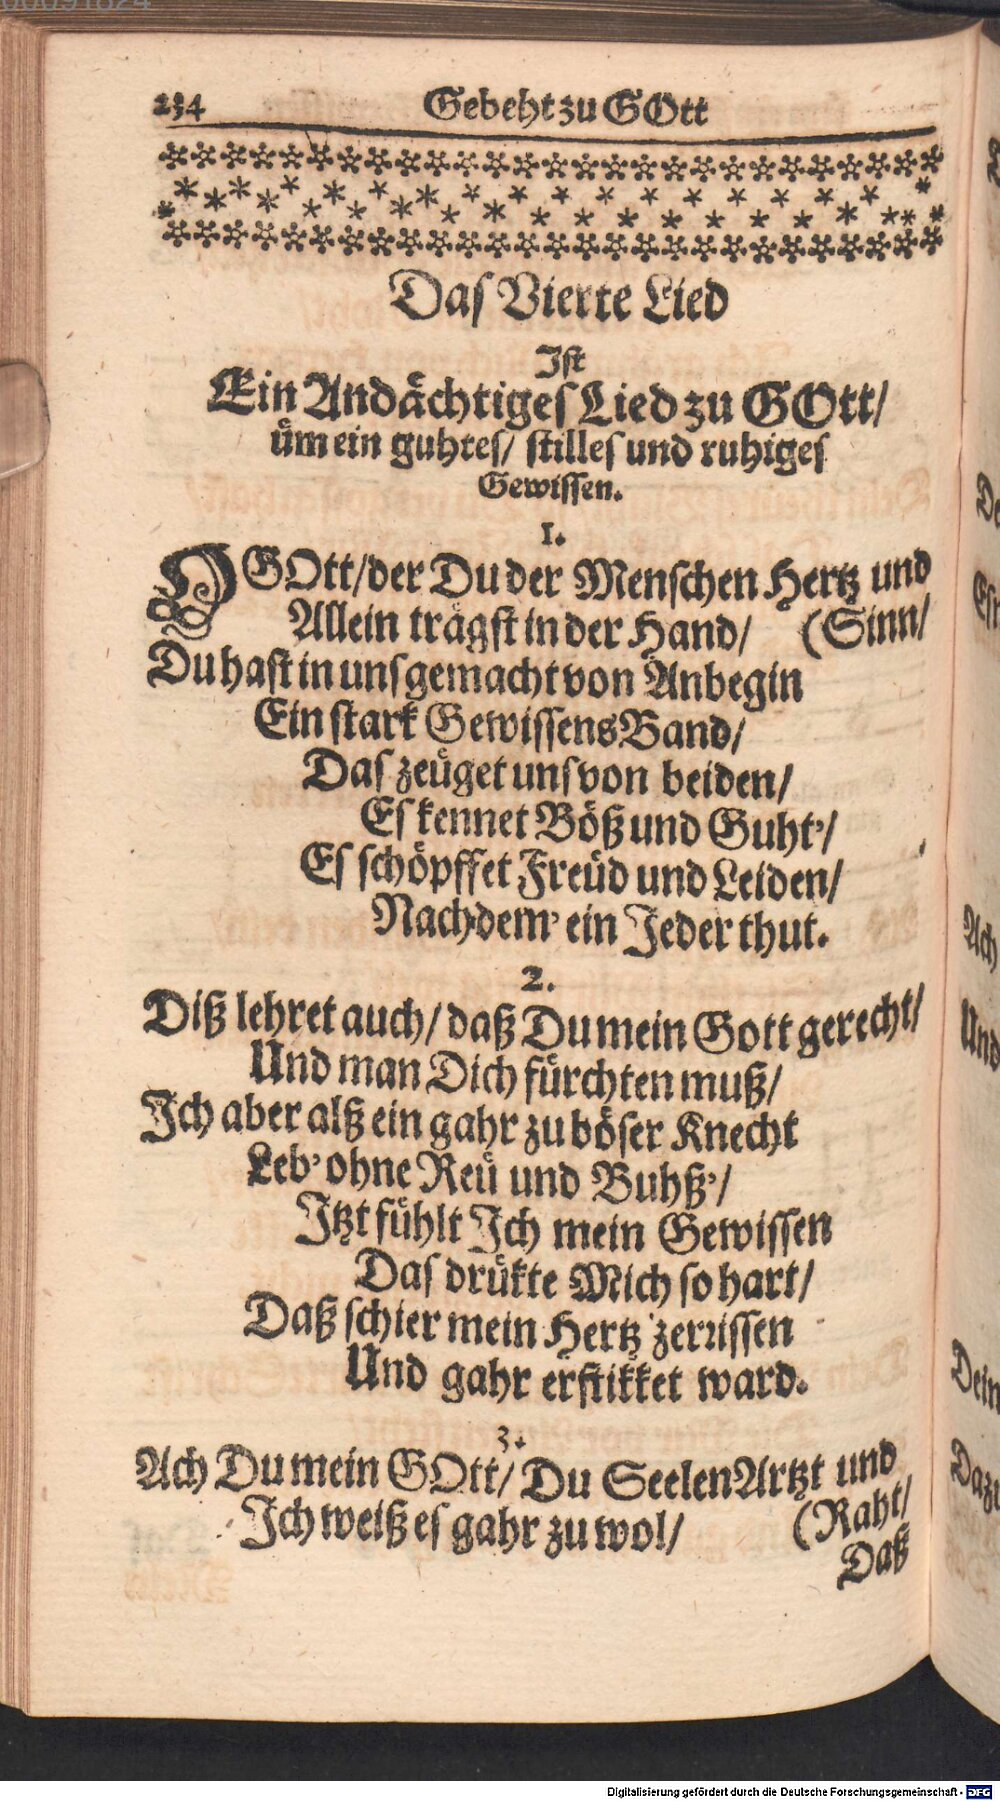 234 Gebeht zu GOtt
Das Vierte Lied
Ist
Ein Andächtiges Lied zu GOtt/
üm ein guhtes/ stilles und ruhiges
Gewissen.
1.
O GOtt/der Du der Menschen Hertz und
Allein trägst in der Hand/ (Sinn/
Du hast in uns gemacht von Anbegin
Ein stark GewissensBand/
Das zeüget uns von beiden/
Es kennet Böß und Guht'/
Es schöpffet Freüd und Leiden/
Nachdem' ein Jeder thut.
2.
Diß lehret auch/ daß Du mein Gott gerecht/
Und man Dich fürchten muß/
Ich aber alß ein gahr zu böser Knecht
Leb' ohne Reü und Buhß'/
Itzt fühlt Ich mein Gewissen
Das drükte Mich so hart/
Daß schier mein Hertz zerrissen
Und gahr erstikket ward.
3.
Ach Du mein GOtt/ Du SeelenArtzt und
Ich weiß es gahr zu wol/ (Raht/
Daß
Digitalisierung gefördert durch die Deutsche Forschungsgemeinschaft - DFG